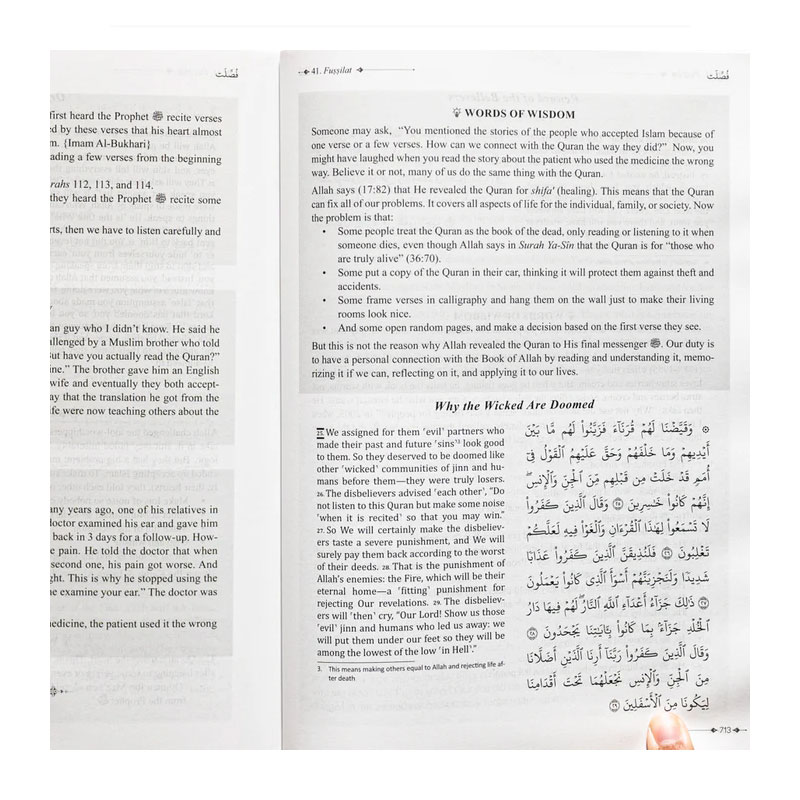 فُصِّلَت
first heard the Prophet ﷺ recite verses
ed by these verses that his heart almost
m. {Imam Al-Bukhari}
ading a few verses from the beginning
rahs 112, 113, and 114.
they heard the Prophet ﷺ recite some
rts, then we have to listen carefully and
an guy who I didn't know. He said he
allenged by a Muslim brother who told
But have you actually read the Quran?"
ine." The brother gave him an English
wife and eventually they both accept-
ay that the translation he got from the
fe were now teaching others about the
any years ago, one of his relatives in
doctor examined his ear and gave him
back in 3 days for a follow-up. How-
e pain. He told the doctor that when
second one, his pain got worse. And
ght. This is why he stopped using the
ne examine your ear." The doctor was
medicine, the patient used it the wrong
41. Fuṣṣilat
فُصِّلَت
WORDS OF WISDOM
Someone may ask, "You mentioned the stories of the people who accepted Islam because of
one verse or a few verses. How can we connect with the Quran the way they did?" Now, you
might have laughed when you read the story about the patient who used the medicine the wrong
way. Believe it or not, many of us do the same thing with the Quran.
Allah says (17:82) that He revealed the Quran for shifa' (healing). This means that the Quran
can fix all of our problems. It covers all aspects of life for the individual, family, or society. Now
the problem is that:
• Some people treat the Quran as the book of the dead, only reading or listening to it when
someone dies, even though Allah says in Surah Ya-Sîn that the Quran is for "those who
are truly alive" (36:70).
• Some put a copy of the Quran in their car, thinking it will protect them against theft and
accidents.
• Some frame verses in calligraphy and hang them on the wall just to make their living
rooms look nice.
• And some open random pages, and make a decision based on the first verse they see.
But this is not the reason why Allah revealed the Quran to His final messenger ﷺ. Our duty is
to have a personal connection with the Book of Allah by reading and understanding it, memo-
rizing it if we can, reflecting on it, and applying it to our lives.
Why the Wicked Are Doomed
25 We assigned for them ˹evil˺ partners who
made their past and future ˹sins˺³ look good
to them. So they deserved to be doomed like
other ˹wicked˺ communities of jinn and hu-
mans before them—they were truly losers.
26. The disbelievers advised ˹each other˺, "Do
not listen to this Quran but make some noise
˹when it is recited˺ so that you may win."
27. So We will certainly make the disbeliev-
ers taste a severe punishment, and We will
surely pay them back according to the worst
of their deeds. 28. That is the punishment of
Allah's enemies: the Fire, which will be their
eternal home—a ˹fitting˺ punishment for
rejecting Our revelations. 29. The disbeliev-
ers will ˹then˺ cry, "Our Lord! Show us those
˹evil˺ jinn and humans who led us away: we
will put them under our feet so they will be
among the lowest of the low ˹in Hell˺."
3. This means making others equal to Allah and rejecting life af-
ter death
۞ وَقَيَّضْنَا لَهُمْ قُرَنَآءَ فَزَيَّنُوا۟ لَهُم مَّا بَيْنَ
أَيْدِيهِمْ وَمَا خَلْفَهُمْ وَحَقَّ عَلَيْهِمُ ٱلْقَوْلُ فِىٓ
أُمَمٍ قَدْ خَلَتْ مِن قَبْلِهِم مِّنَ ٱلْجِنِّ وَٱلْإِنسِ ۖ
إِنَّهُمْ كَانُوا۟ خَـٰسِرِينَ ٢٥ وَقَالَ ٱلَّذِينَ كَفَرُوا۟
لَا تَسْمَعُوا۟ لِهَـٰذَا ٱلْقُرْءَانِ وَٱلْغَوْا۟ فِيهِ لَعَلَّكُمْ
تَغْلِبُونَ ٢٦ فَلَنُذِيقَنَّ ٱلَّذِينَ كَفَرُوا۟ عَذَابًا
شَدِيدًا وَلَنَجْزِيَنَّهُمْ أَسْوَأَ ٱلَّذِى كَانُوا۟ يَعْمَلُونَ
٢٧ ذَٰلِكَ جَزَآءُ أَعْدَآءِ ٱللَّهِ ٱلنَّارُ ۖ لَهُمْ فِيهَا دَارُ
ٱلْخُلْدِ جَزَآءًۢ بِمَا كَانُوا۟ بِـَٔايَـٰتِنَا يَجْحَدُونَ ٢٨
وَقَالَ ٱلَّذِينَ كَفَرُوا۟ رَبَّنَآ أَرِنَا ٱلَّذَيْنِ أَضَلَّانَا
مِنَ ٱلْجِنِّ وَٱلْإِنسِ نَجْعَلْهُمَا تَحْتَ أَقْدَامِنَا
لِيَكُونَا مِنَ ٱلْأَسْفَلِينَ ٢٩
713